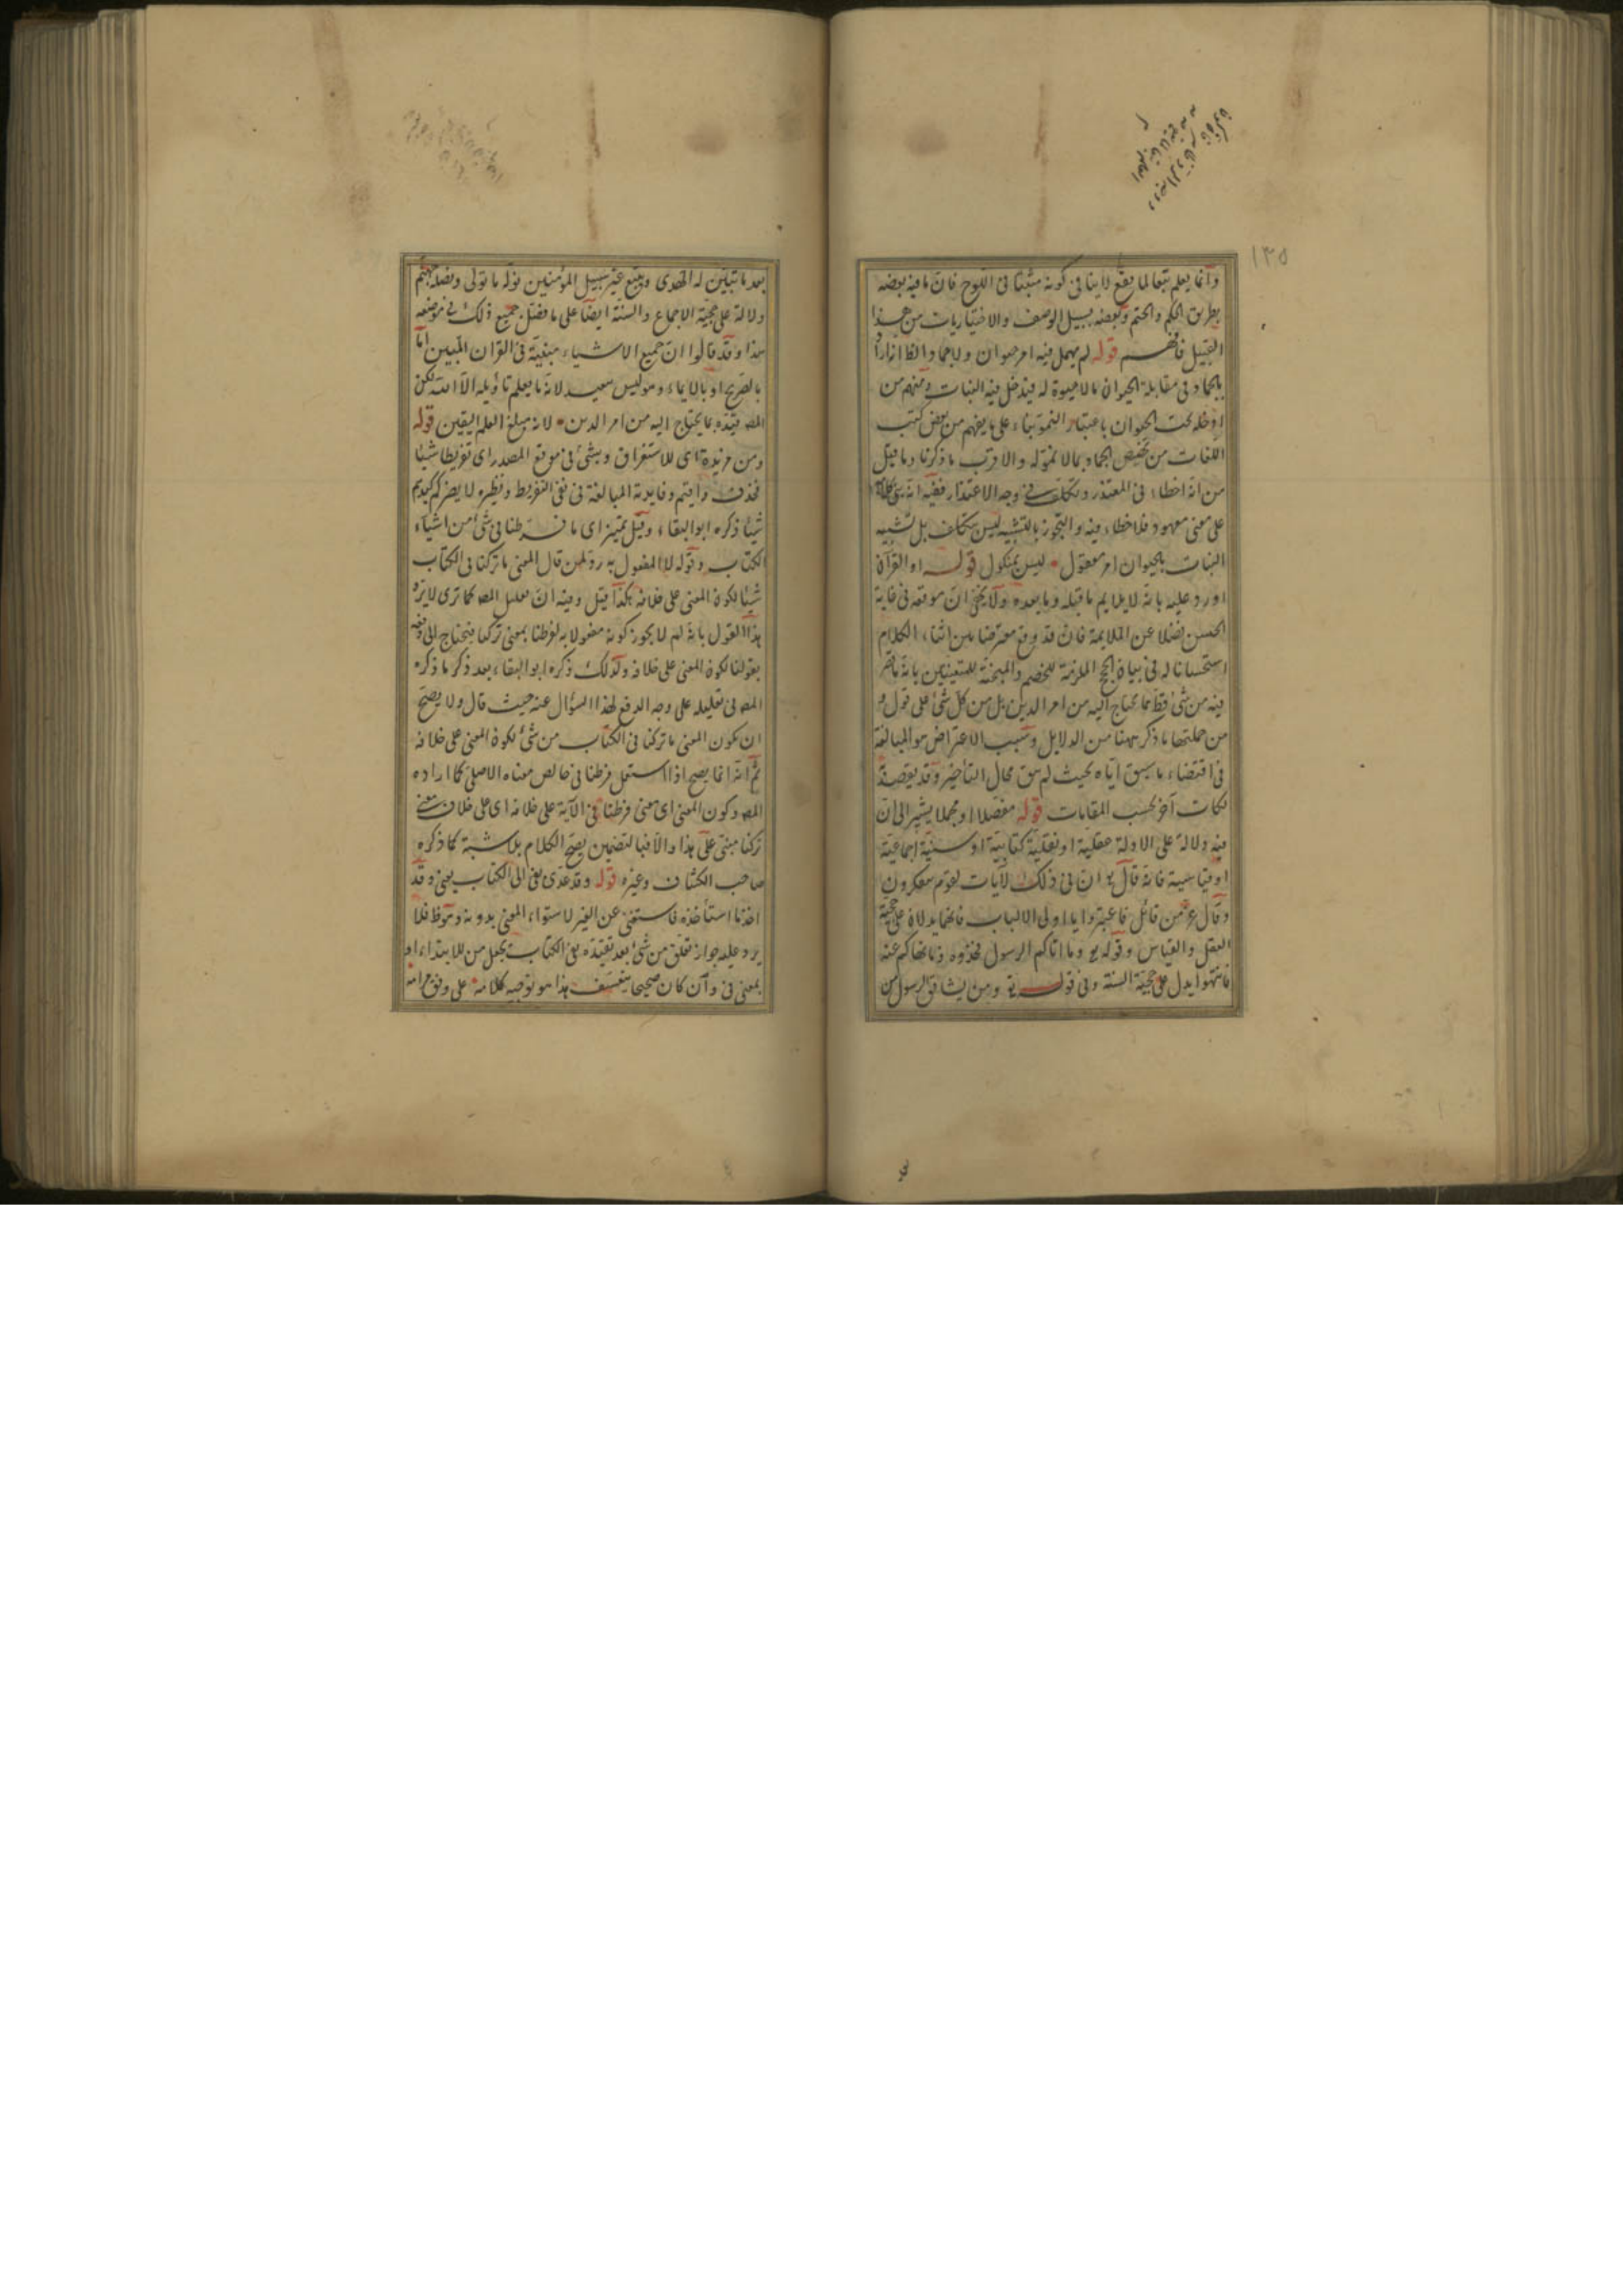 ١٣٥
وانما يعلم تبعا لما يقع لا ينافى كونه مثبتا فى اللوح فان ما فيه بعضه
بطريق الحكم والحتم وبعضه بسبيل الوصف والاختياريات من هذا
القبيل فافهم قوله لم يهمل فيه امر حيوان ولا جماد الظ انه اراد
بالجماد فى مقابلة الحيوان ما لا حيوة له فيدخل فيه النبات ومنهم من
ادخله تحت الحيوان باعتبار النمو بناء على ما يفهم من بعض كتب
اللغات من تخصيص الجماد بما لا نمو له والاقرب ما ذكرنا وما قيل
من انه اخطاء فى المعتذر وتكلف فى وجه الاعتذار ففيه انه
على معنى معهود فلا خطاء فيه والتجوز بالتشبيه ليس بتكلف بل تشبيه
النبات بالحيوان امر معقول ليس بمنكول قوله او القرآن
اورد عليه بانه لا يلايم ما قبله وما بعده ولا يخفى ان موقعه فى غاية
الحسن فضلا عن الملايمة فانه قد وقع معترضا بين اثناء الكلام
استحسانا له فى بيان الحجج الملزمة للخصم والمبخته للمتعنتين بانه ما قصر
فيه من شئ قط مما يحتاج اليه من امر الدين بل من كل شئ على قول و
من جملتها ما ذكر ههنا من الدلايل وسبب الاعتراض هو المبالغة
فى اقتضاء ما سبق اياه بحيث لم يبق مجال التأخير وقد يقصد
نكات آخر بحسب المقامات قوله مفصلا او مجملا يشير الى ان
فيه دلالة على الادلة عقلية او نقلية كتابية او سنية اجماعية
او قياسية فانه قال تع ان فى ذلك لآيات لقوم يتفكرون
وقال عز من قائل فاعتبروا يا اولى الالباب فانهما يدلان على حجية
العقل والقياس وقوله تع وما اتاكم الرسول فخذوه وما نهاكم عنه
فانتهوا يدل على حجية السنة وفى قوله تع ومن يشاقق الرسول من
بعد ما تبين له الهدى ويتبع غير سبيل المؤمنين نوله ما تولى ونصله جهنم
دلالة على حجية الاجماع والسنة ايضا على ما فصل جميع ذلك فى موضعه
هذا وقد قالوا ان جميع الاشياء مبينة فى القران المبين اما
بالصريح او بالايماء وهو ليس ببعيد لانه ما يعلم تأويله الا الله لكن
المص قيده بما يحتاج اليه من امر الدين لانه مبلغ العلم اليقين قوله
ومن مزيدة اى للاستغراق وبشئ فى موقع المصدر اى تفريطا شيئا
فحذف واقيم وفايدته المبالغة فى نفى التفريط ونظيره لا يضركم كيدهم
شيئا ذكره ابو البقاء وقيل تمييز اى ما فرطنا فى شئ من اشياء
الكتاب وقوله لا المفعول به رد لمن قال المعنى ما تركنا فى الكتاب
شيئا لكون المعنى على خلافه هكذا قيل وفيه ان تعليل المص كما ترى لا يرد
هذا القول بانه لم لا يجوز كونه مفعولا به لفرطنا بمعنى تركنا فيحتاج الى دفعه
بقولنا لكون المعنى على خلافه ولذلك ذكره ابو البقاء بعد ذكر ما ذكره
المص فى تعليله على وجه الدفع لهذا السؤال عنه حيث قال ولا يصح
ان يكون المعنى ما تركنا فى الكتاب من شئ لكون المعنى على خلافه
ثم انه انما يصح اذا استعمل فرطنا فى خالص معناه الاصلى كما اراده
المص وكون المعنى اى معنى فرطنا فى الآية على خلافه اى على خلاف معنى
تركنا مبنى على هذا والا فبالتضمين يصح الكلام بلا شبهة كما ذكره
صاحب الكشاف وغيره قوله وقد عدى بفى الى الكتاب يعنى وقد
اخذ ما استأخذه فاستغنى عن الغير لاستواء المعنى بدونه وهو ظ فلا
يرد عليه جواز تعلق من شئ بعد تقيده بفى الكتاب بجعل من للابتداء او
بمعنى فى وان كان صحيحا بتعسف هذا هو توجيه كلامه على وفق مرامه